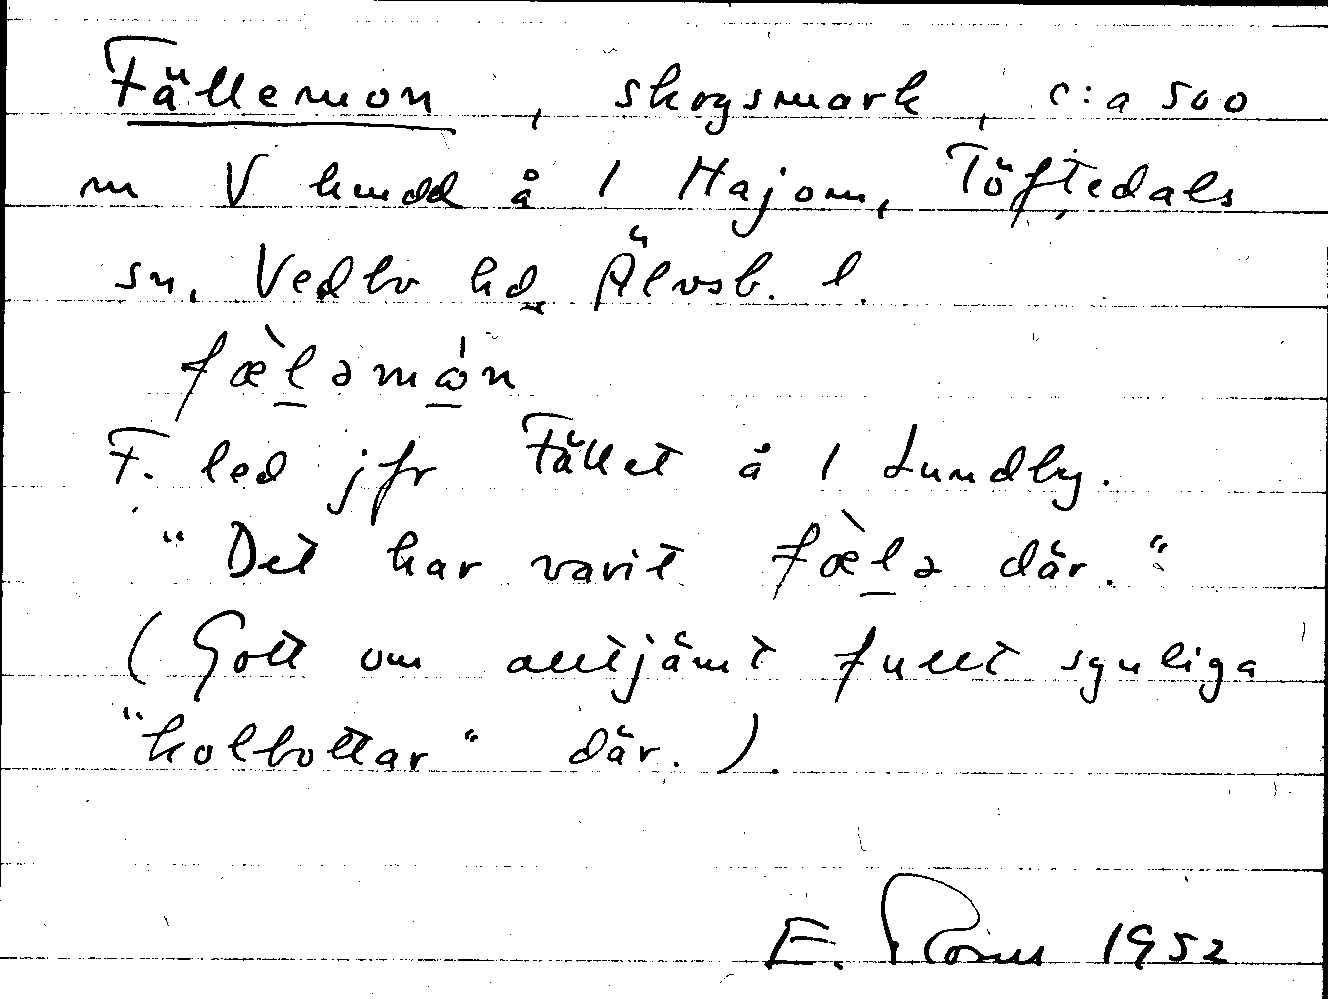 Fällemon, skogsmark, c:a 500
m V hmdd å 1 Hajom, Töftedals
sn. Vedbo hd. Älvsb. l.
fæ̀lǝmón
F. led jfr Fället å 1 Lundby.
"Det har varit fæ̀lǝ där."
(Gott om alltjämt fullt synliga
"kolbottar" där.).
E. 1952